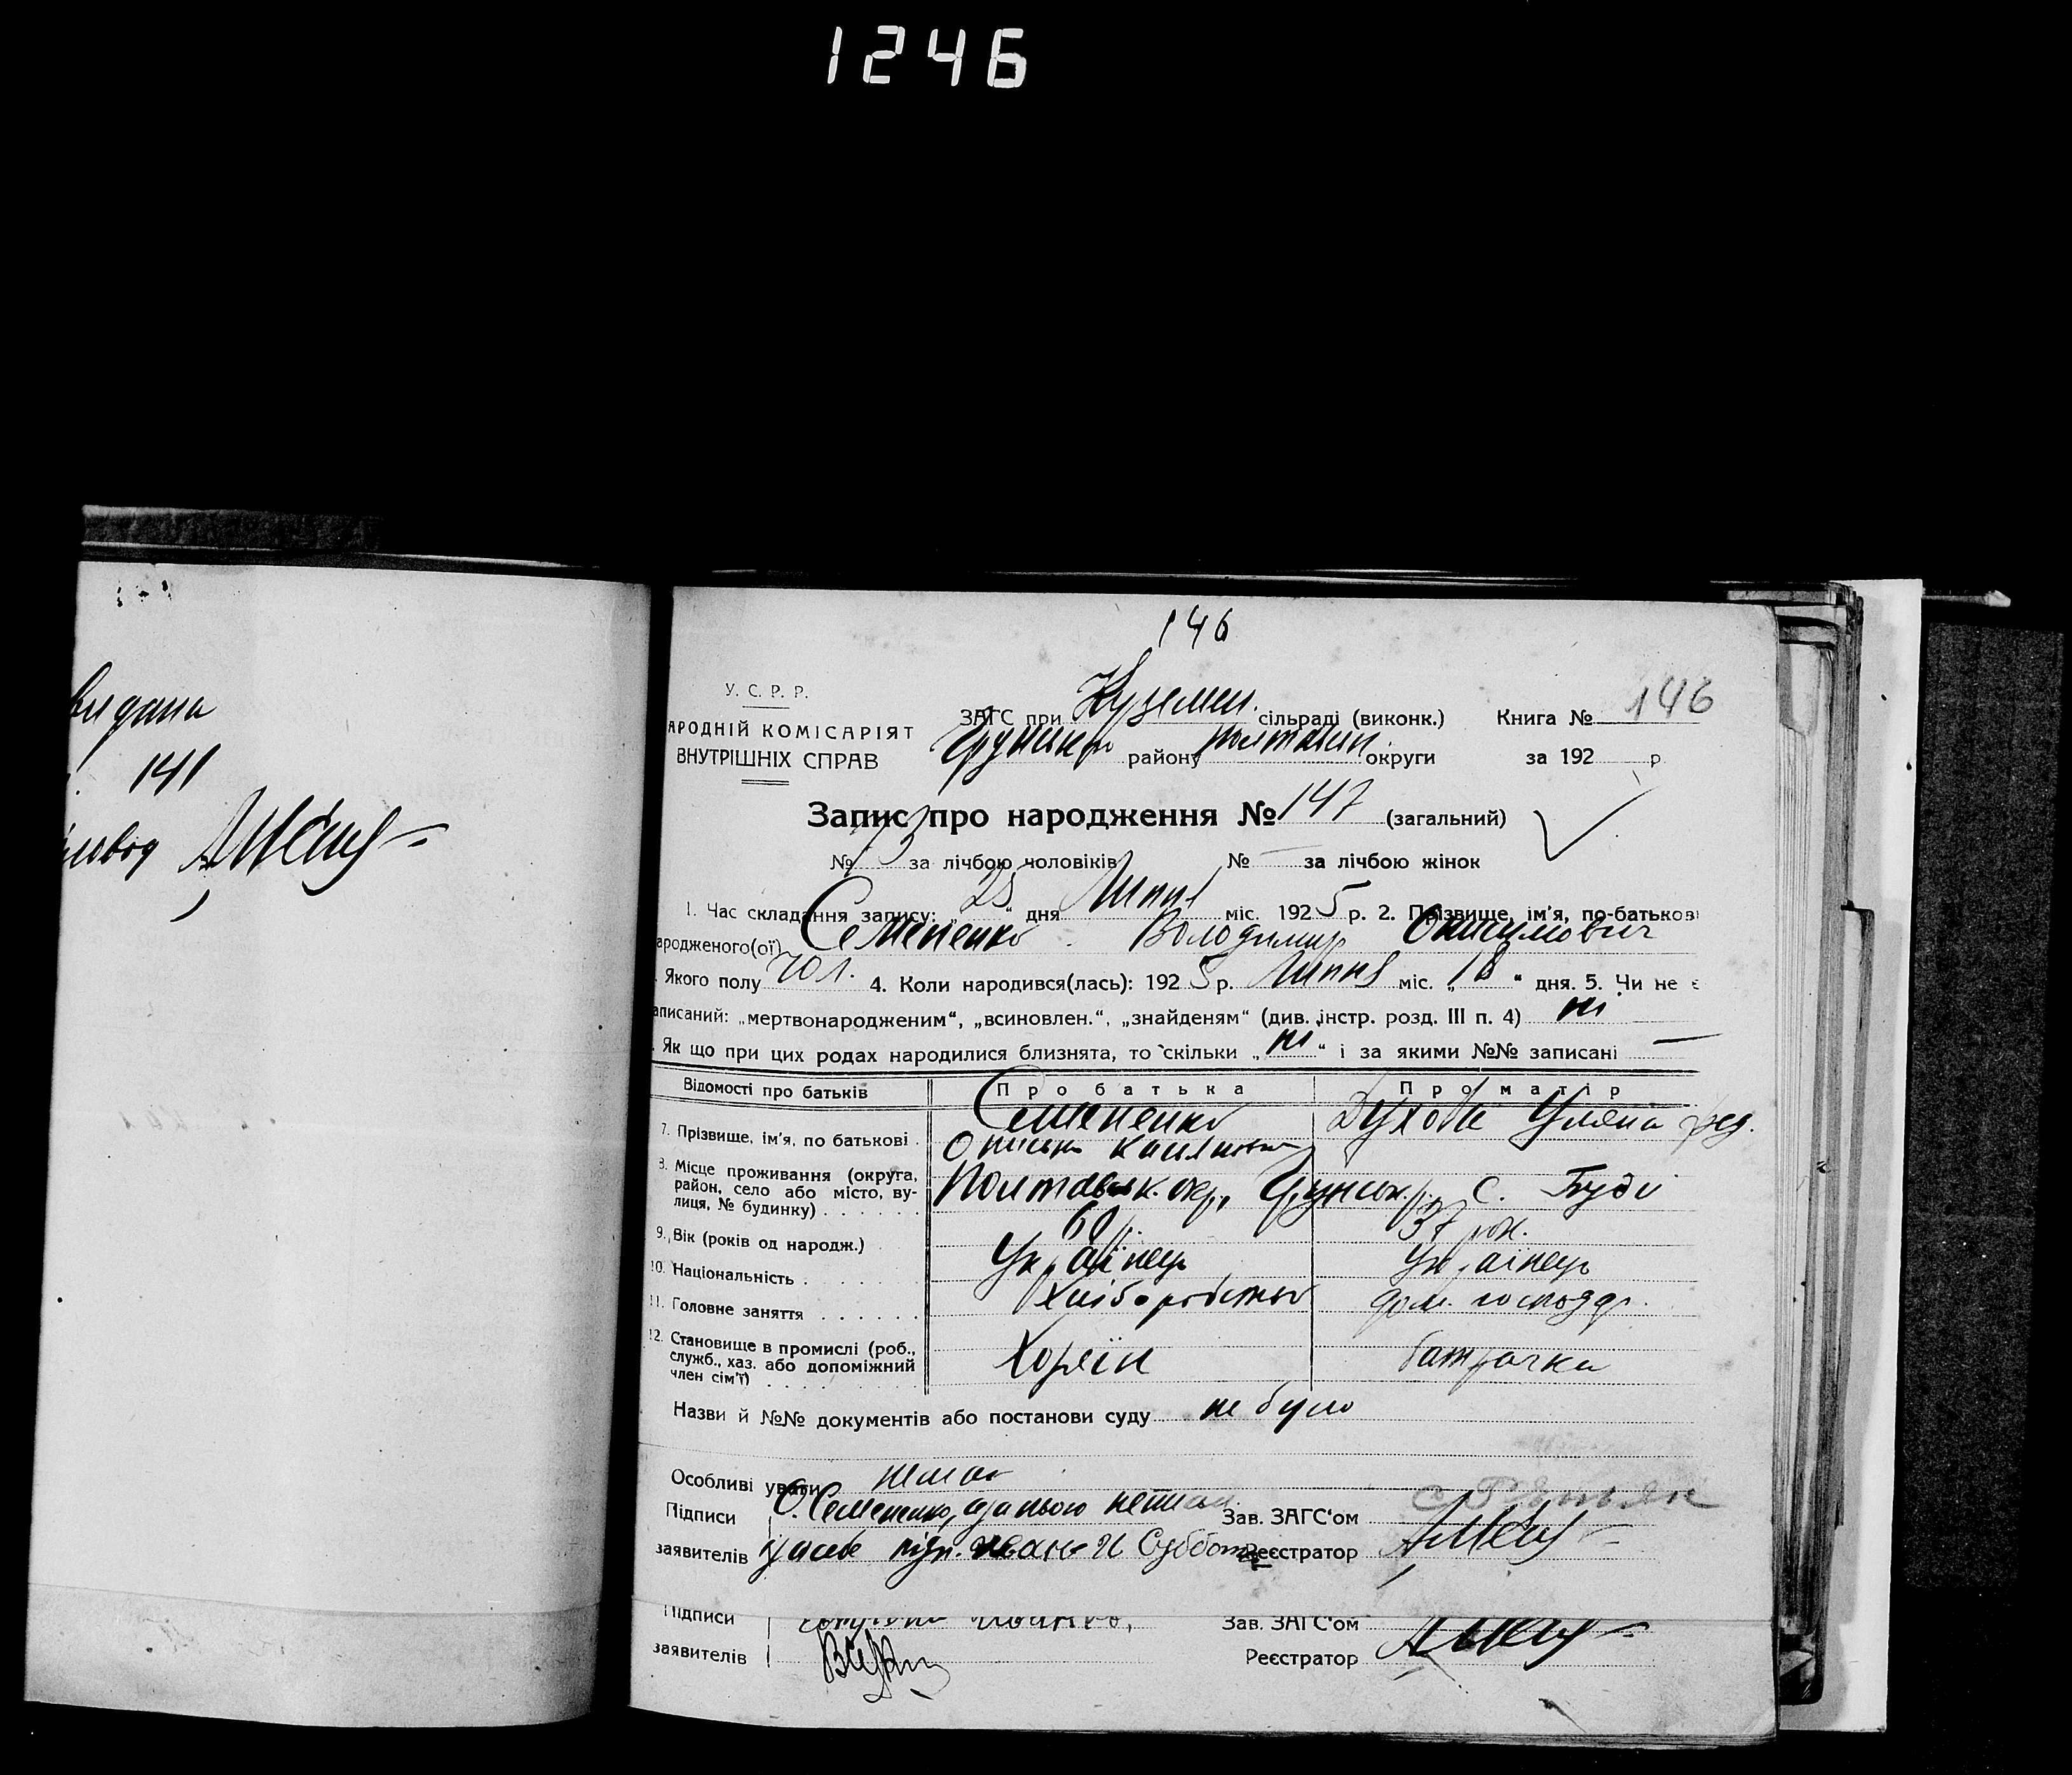 1246
видана
141
146
У. С. Р. Р.
АРОДНІЙ КОМІСАРІЯТ
ВНУТРІШНІХ СПРАВ
ЗАГС при Куземин. сільраді (виконк.) Книга № 146
району Полтавськ округи за 192 р
Запис про народження № 147 (загальний)
№ 73 за лічбою чоловіків № — за лічбою жінок
1. Час складання запису: „25“ дня Липня міс. 1925 р. 2. Прізвище, ім'я, по-батькові
ародженого(ої) Семененко Володимир Онисимович
Якого полу чол. 4. Коли народився(лась): 1925 р. Липня міс. „18“ дня. 5. Чи не є
аписаний: „мертвонародженим“, „всиновлен.“, „знайденям“ (див. інстр. розд. III п. 4) ні
Як що при цих родах народилися близнята, то скільки „ні“ і за якими №№ записані —
Відомості про батьків Про батька Про матір
7. Прізвище, ім'я, по батькові Семененко Духова Уляна
8. Місце проживання (округа, район, село або місто, вулиця, № будинку) Полтавськ. окр., Грунськ. р. с. Буди
9. Вік (років од народж.) 60 р. 37 рок.
10. Національність Українець Українець
11. Головне заняття Хліборобство дом. господар.
12. Становище в промислі (роб., служб., хаз. або допоміжний член сім'ї) Хозяїн батрачка
Назви й №№ документів або постанови суду не було
Особливі уваги нема
Підписи О. Семененко, а за нього неписьм Зав. ЗАГС'ом
заявителів підп. Іван Суббота Реєстратор
Підписи Зав. ЗАГС'ом
заявителів Реєстратор